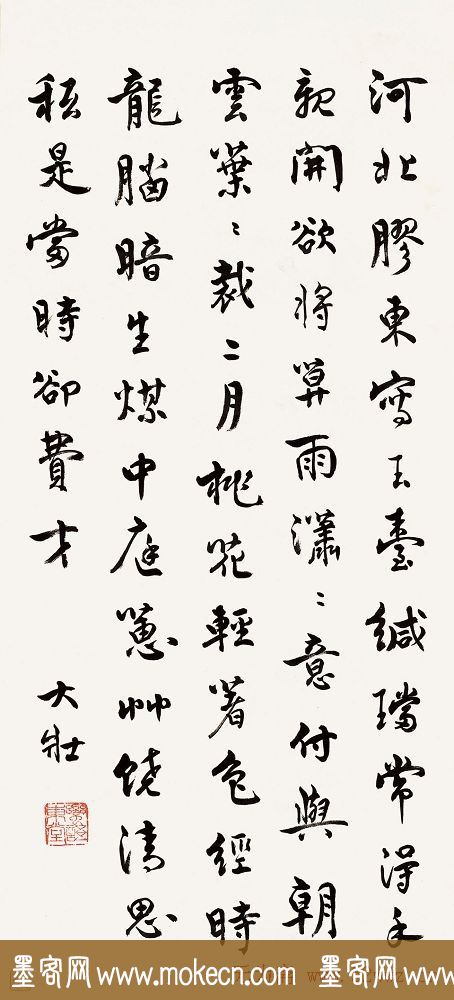 河北膠東寫玉臺緘璫常得手
親開欲將莫雨瀟〻意付與朝
雲葉〻裁二月桃花輕著色經時
龍腦暗生煤中庭蕙艸饒清思
秖是當時卻費才
大壯
墨客网 www.mokecn.com 墨客网 www.mokecn.com